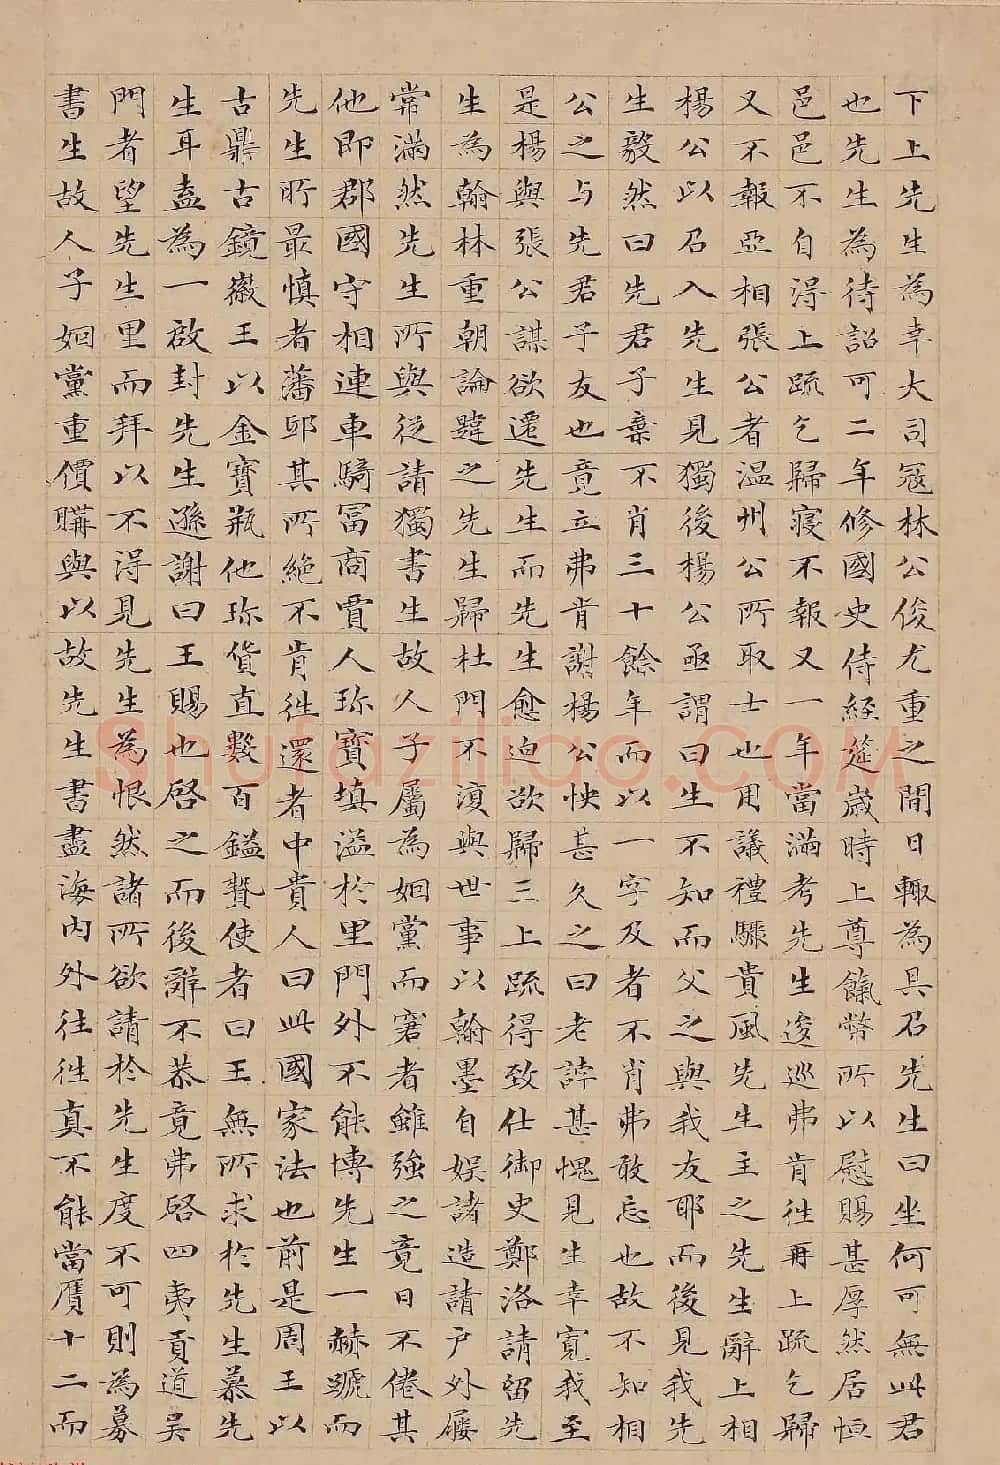 下上先生為幸大司冦林公俊尤重之間日輙為具召先生曰坐何可無此君
也先生為待詔可二年修國史侍經筵歲時上尊餼幣所以慰賜甚厚然居恒
邑邑不自得上疏乞歸寢不報又一年當滿考先生逡巡弗肯徃再上疏乞歸
又不報亞相張公者温州公所取士也用議禮驟貴風先生主之先生辭上相
楊公以召入先生見獨後楊公亟謂曰生不知而父之與我友耶而後見我先
生毅然曰先君子棄不肖三十餘年而以一字及者不肖弗敢忘也故不知相
公之与先君子友也竟立弗肯謝楊公怏甚久之曰老誖甚愧見生幸寬我至
是楊與張公謀欲遷先生而先生愈迫欲歸三上疏得致仕御史鄭洛請留先
生為翰林重朝論韙之先生歸杜門不復與世事以翰墨自娱諸造請户外屨
常滿然先生所與從請獨書生故人子屬為姻黨而窘者雖強之竟日不倦其
他即郡國守相連車騎冨商賈人珎寶填溢於里門外不能博先生一赫蹏而
先生所最慎者藩邸其所絶不肯徃還者中貴人曰此國家法也前是周王以
古鼎古鏡徽王以金寶瓶他珎貨直數百鎰贄使者曰王無所求於先生慕先
生耳盍為一啟封先生遜謝曰王賜也啓之而後辭不恭竟弗啓四夷貢道吴
門者望先生里而拜以不得見先生為恨然諸所欲請於先生度不可則為募
書生故人子姻黨重價購與以故先生書畫海内外往徃真不能當贋十二而
Shufaziliao.COM